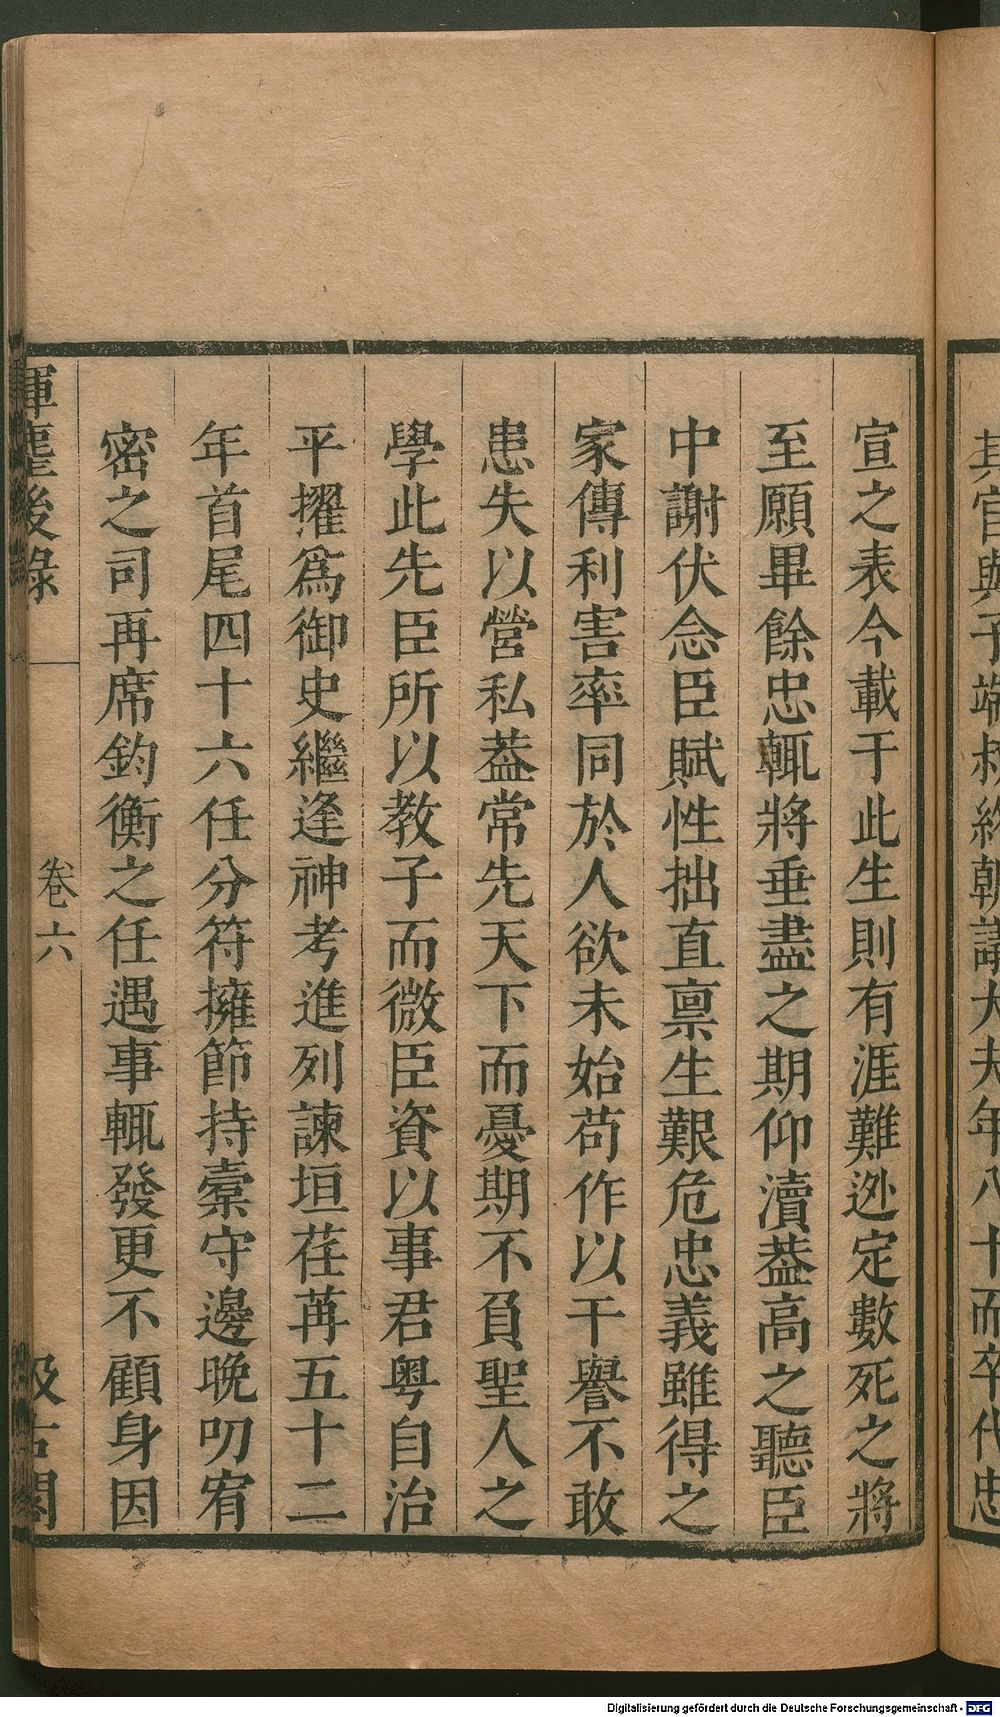 其官與子端
朝議大夫年八十而卒代忠
宣之表今載于此生則有涯難逃定數死之將
至願畢餘忠輒將垂盡之期仰瀆葢高之聽臣
中謝伏念臣賦性拙直禀生艱危忠義雖得之
家傳利害率同於人欲未始苟作以干譽不敢
患失以營私葢常先天下而憂期不負聖人之
學此先臣所以教子而微臣資以事君粤自治
平擢爲御史繼逢神考進列諫垣荏苒五十二
年首尾四十六任分符擁節持橐守邊晚叨宥
密之司再席鈞衡之任遇事輒發更不顧身因
揮麈後錄 卷六 汲古閣
Digitalisierung gefördert durch die Deutsche Forschungsgemeinschaft - DFG